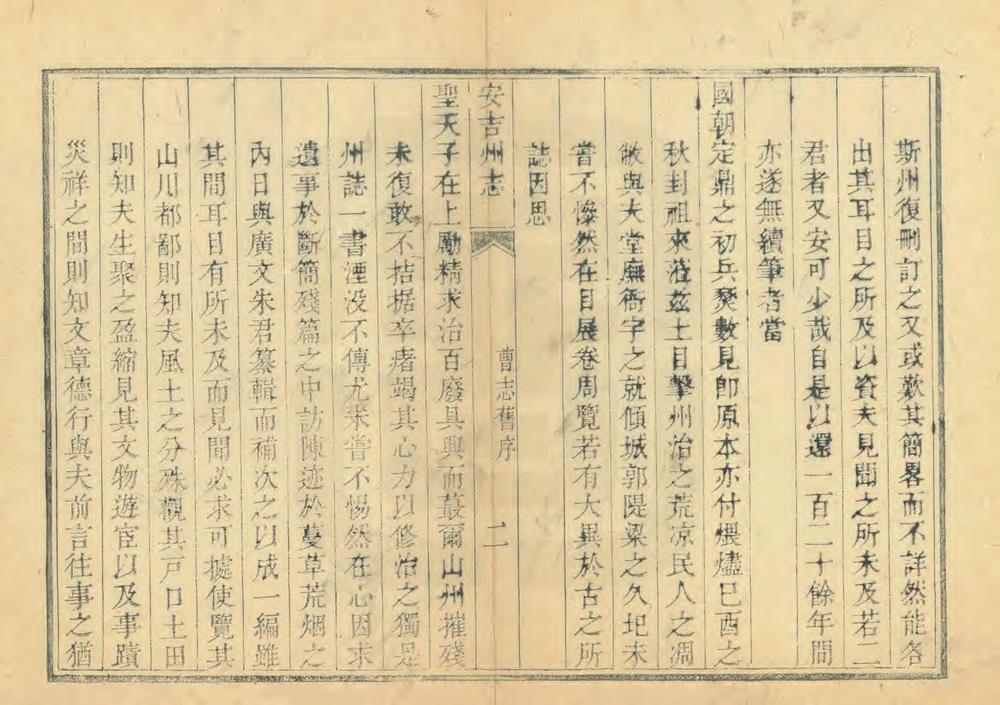 斯州復刪訂之又或歎其簡畧而不詳然能各
出其耳目之所及以資夫見聞之所未及若二
君者又安可少哉自是以還一百二十餘年間
亦遂無續筆者當
國朝定鼎之初兵燹數見卽原本亦付煨燼已酉之
秋封祖來蒞兹土目擊州治之荒凉民人之凋
敝與夫堂廡衙宇之就傾城郭隄梁之久圯未
嘗不慘然在目展卷周覽若有大異於古之所
誌因思
安吉州志
曹志舊序
二
聖天子在上勵精求治百廢具興而蕞爾山州摧殘
未復敢不拮据卒瘏竭其心力以修治之獨是
州誌一書湮没不傳尤未嘗不惕然在心因求
遺事於斷簡殘篇之中訪陳迹於蔓草荒烟之
內日與廣文朱君纂輯而補次之以成一編雖
其間耳目有所未及而見聞必求可據使覽其
山川都鄙則知夫風土之分殊觀其戸口土田
則知夫生聚之盈縮見其文物遊宦以及事蹟
災祥之間則知文章德行與夫前言往事之猶